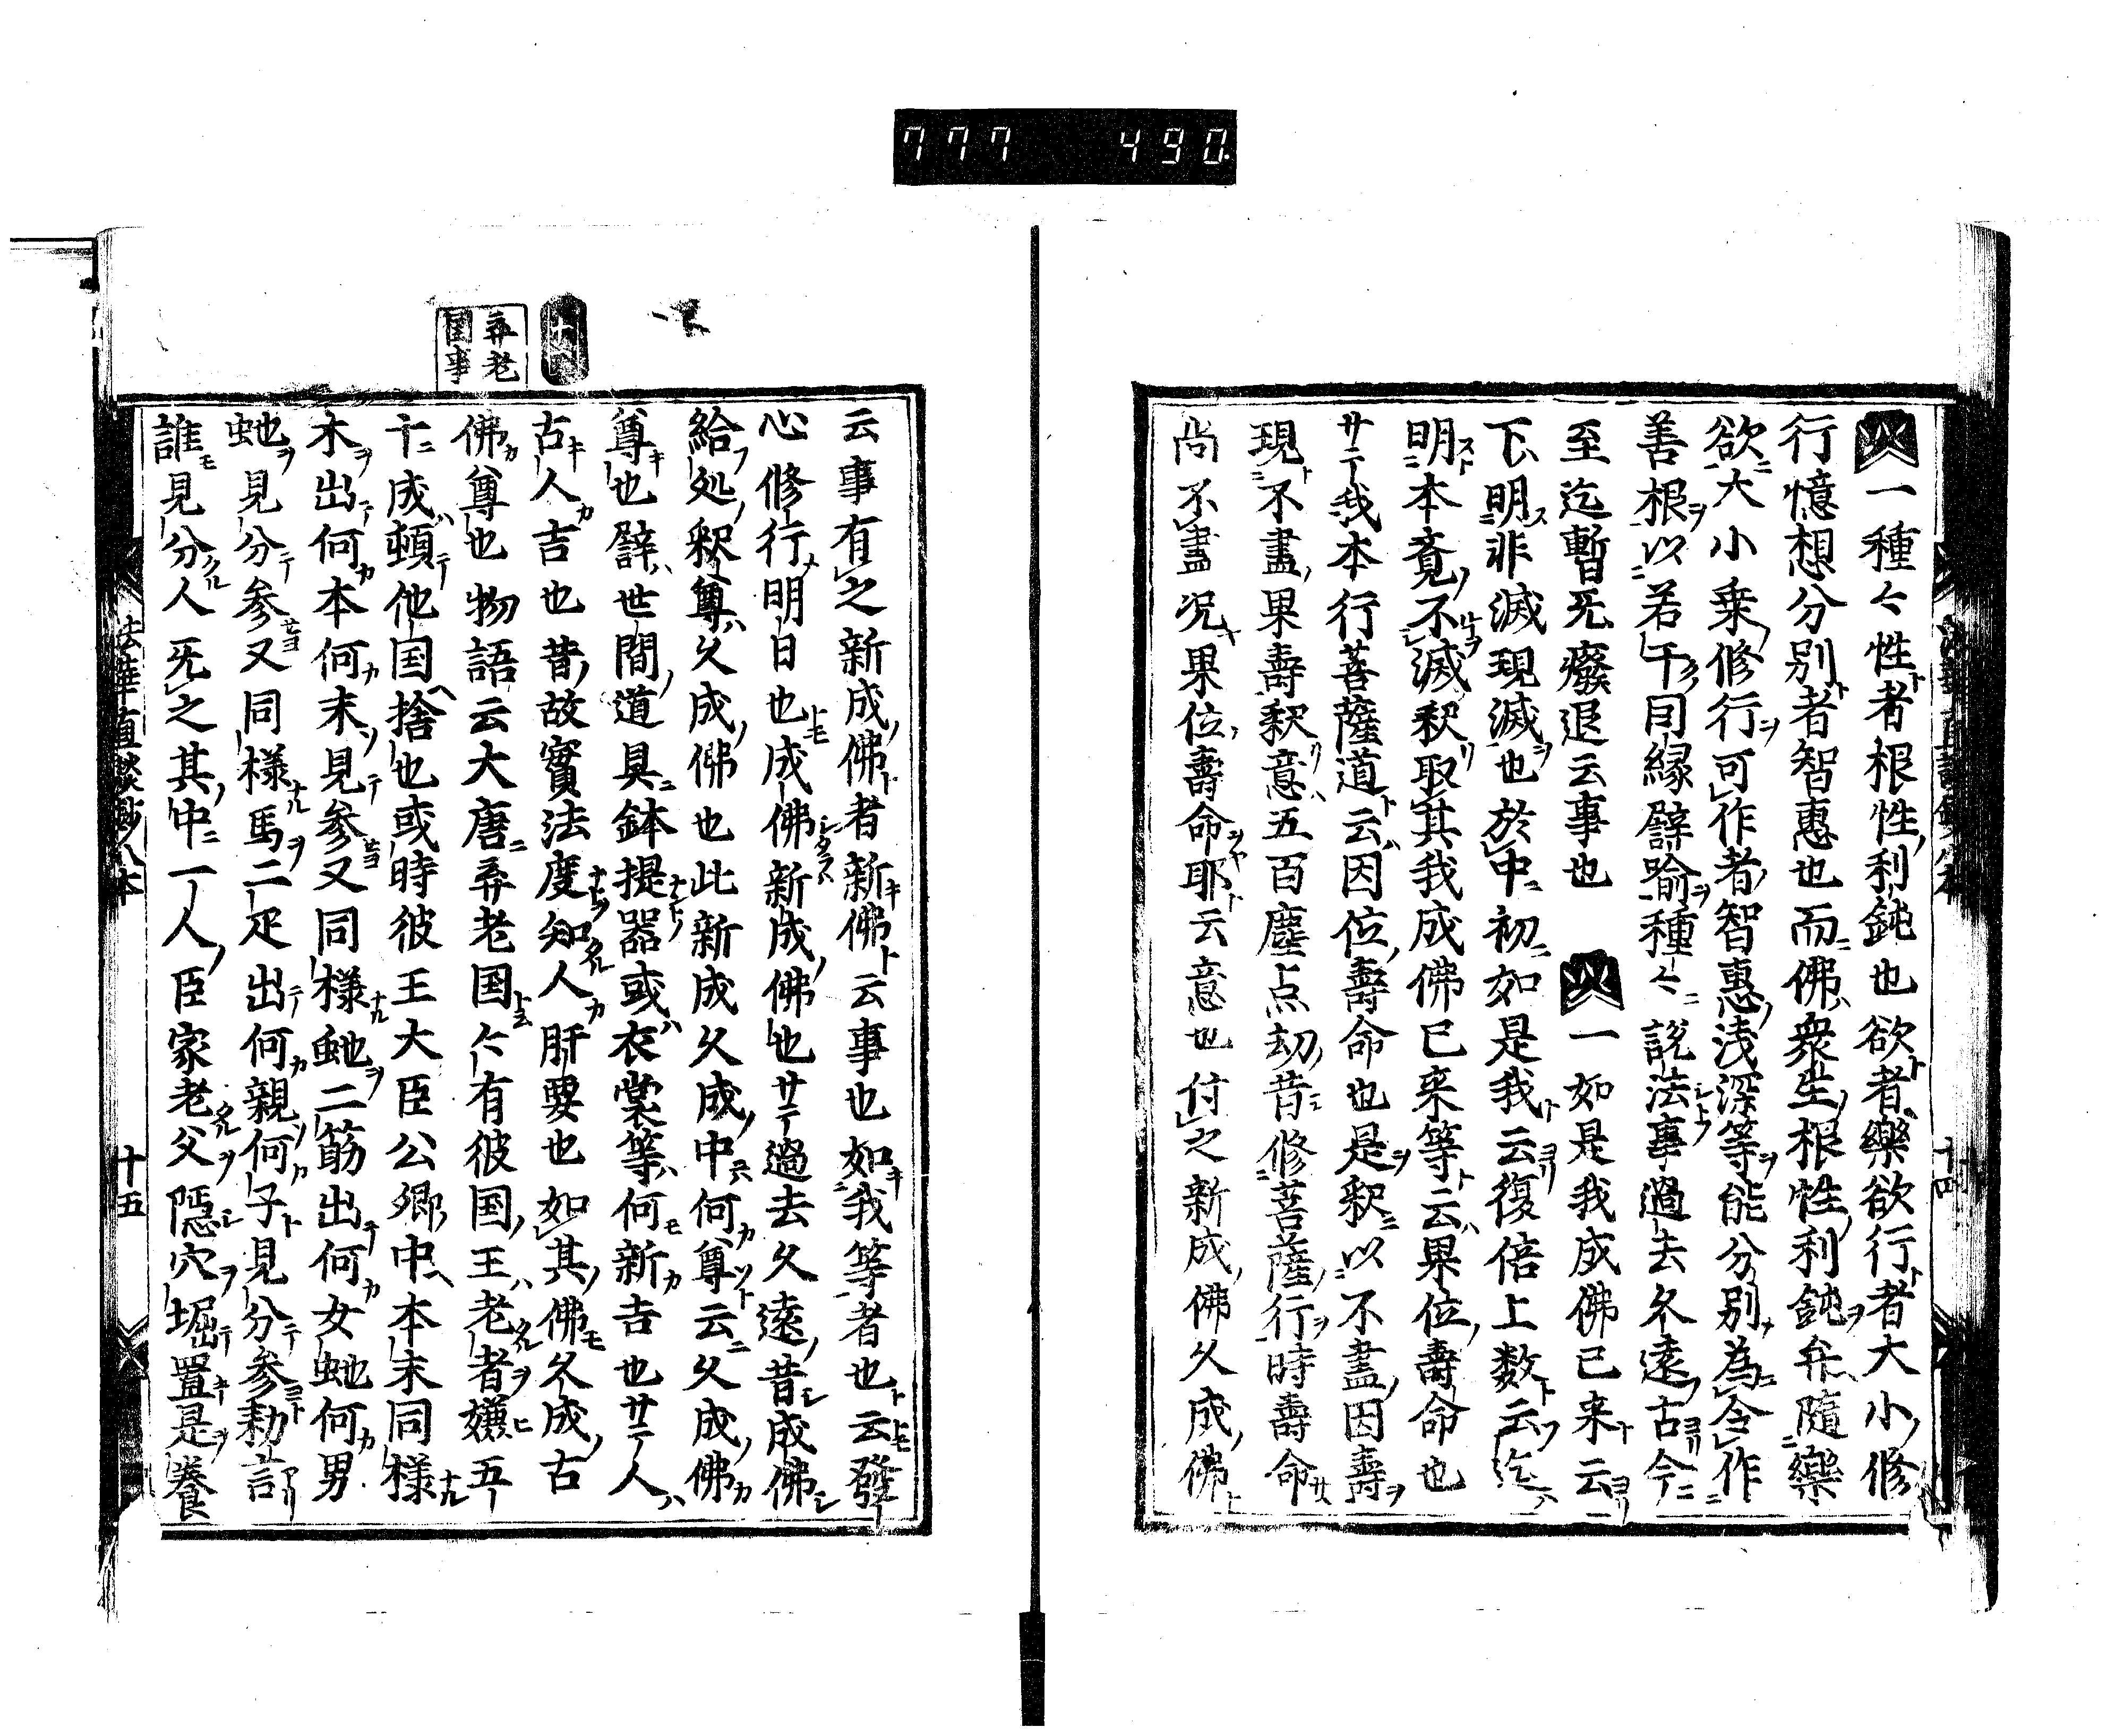 777 490
一種々性者根性利鈍也欲者樂欲行者大小修
行憶想分別者智惠也而佛衆生根性利鈍弁隨樂
欲大小乗修行可作者智惠浅深等能分別為令作
善根以若干因縁譬喻種々説法事過去久遠古今
至迄暫无癈退云事也 一如是我成佛已来云
下明非滅現滅也於中初如是我云復倍上数云迄
明本竟不滅釈取其我成佛已来等云果位壽命也
サテ我本行菩薩道云因位壽命也是釈以不盡因壽
現不盡果壽釈意五百塵点劫昔修菩薩行時壽命
尚不盡况果位壽命耶云意也付之新成佛久成佛
云事有之新成佛者新佛云事也如我等者也云發
心修行明日也成佛新成佛也サテ過去久遠昔成佛
給処釈尊久成佛也此新成久成中何尊云久成佛
尊也譬世間道具鉢提器或衣裳等何新吉也サテ人
古人吉也昔故實法度知人肝要也如其佛久成古
佛尊也物語云大唐弃老国々有彼国王老者嫌五
十成頓他国捨也或時彼王大臣公卿中本末同様
木出何本何末見参又同様虵二筯出何女虵何男
虵見分参又同様馬二疋出何親何子見分参勅言
誰見分人无之其中一人臣家老父隱穴堀置是養
弃老
国事
法華直談鈔八本 十五